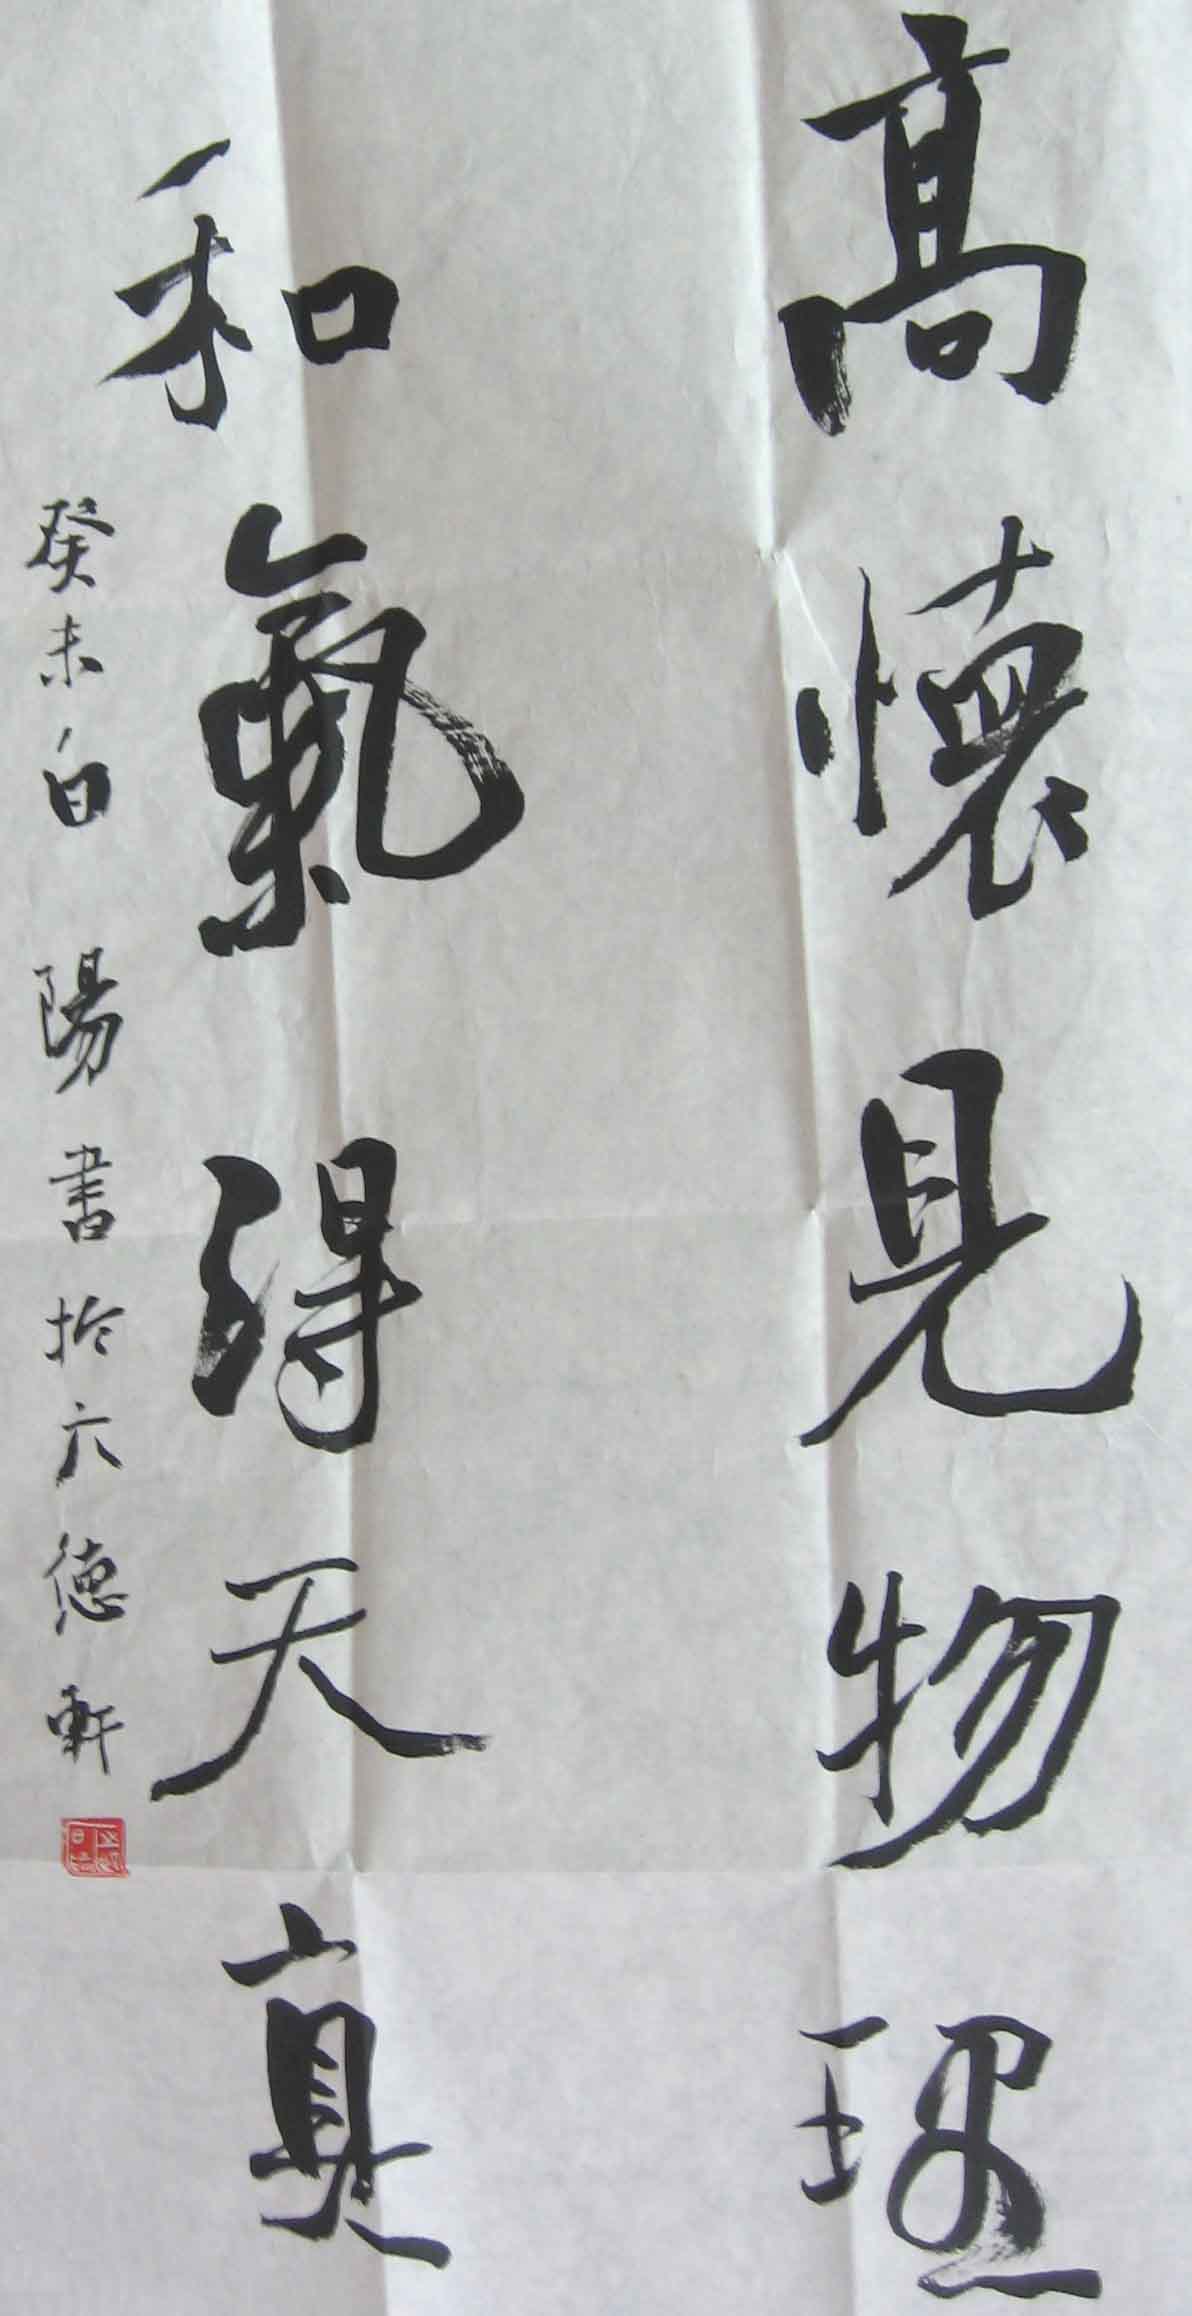 高懷見物理
和氣得天真
癸未白陽書於六德軒